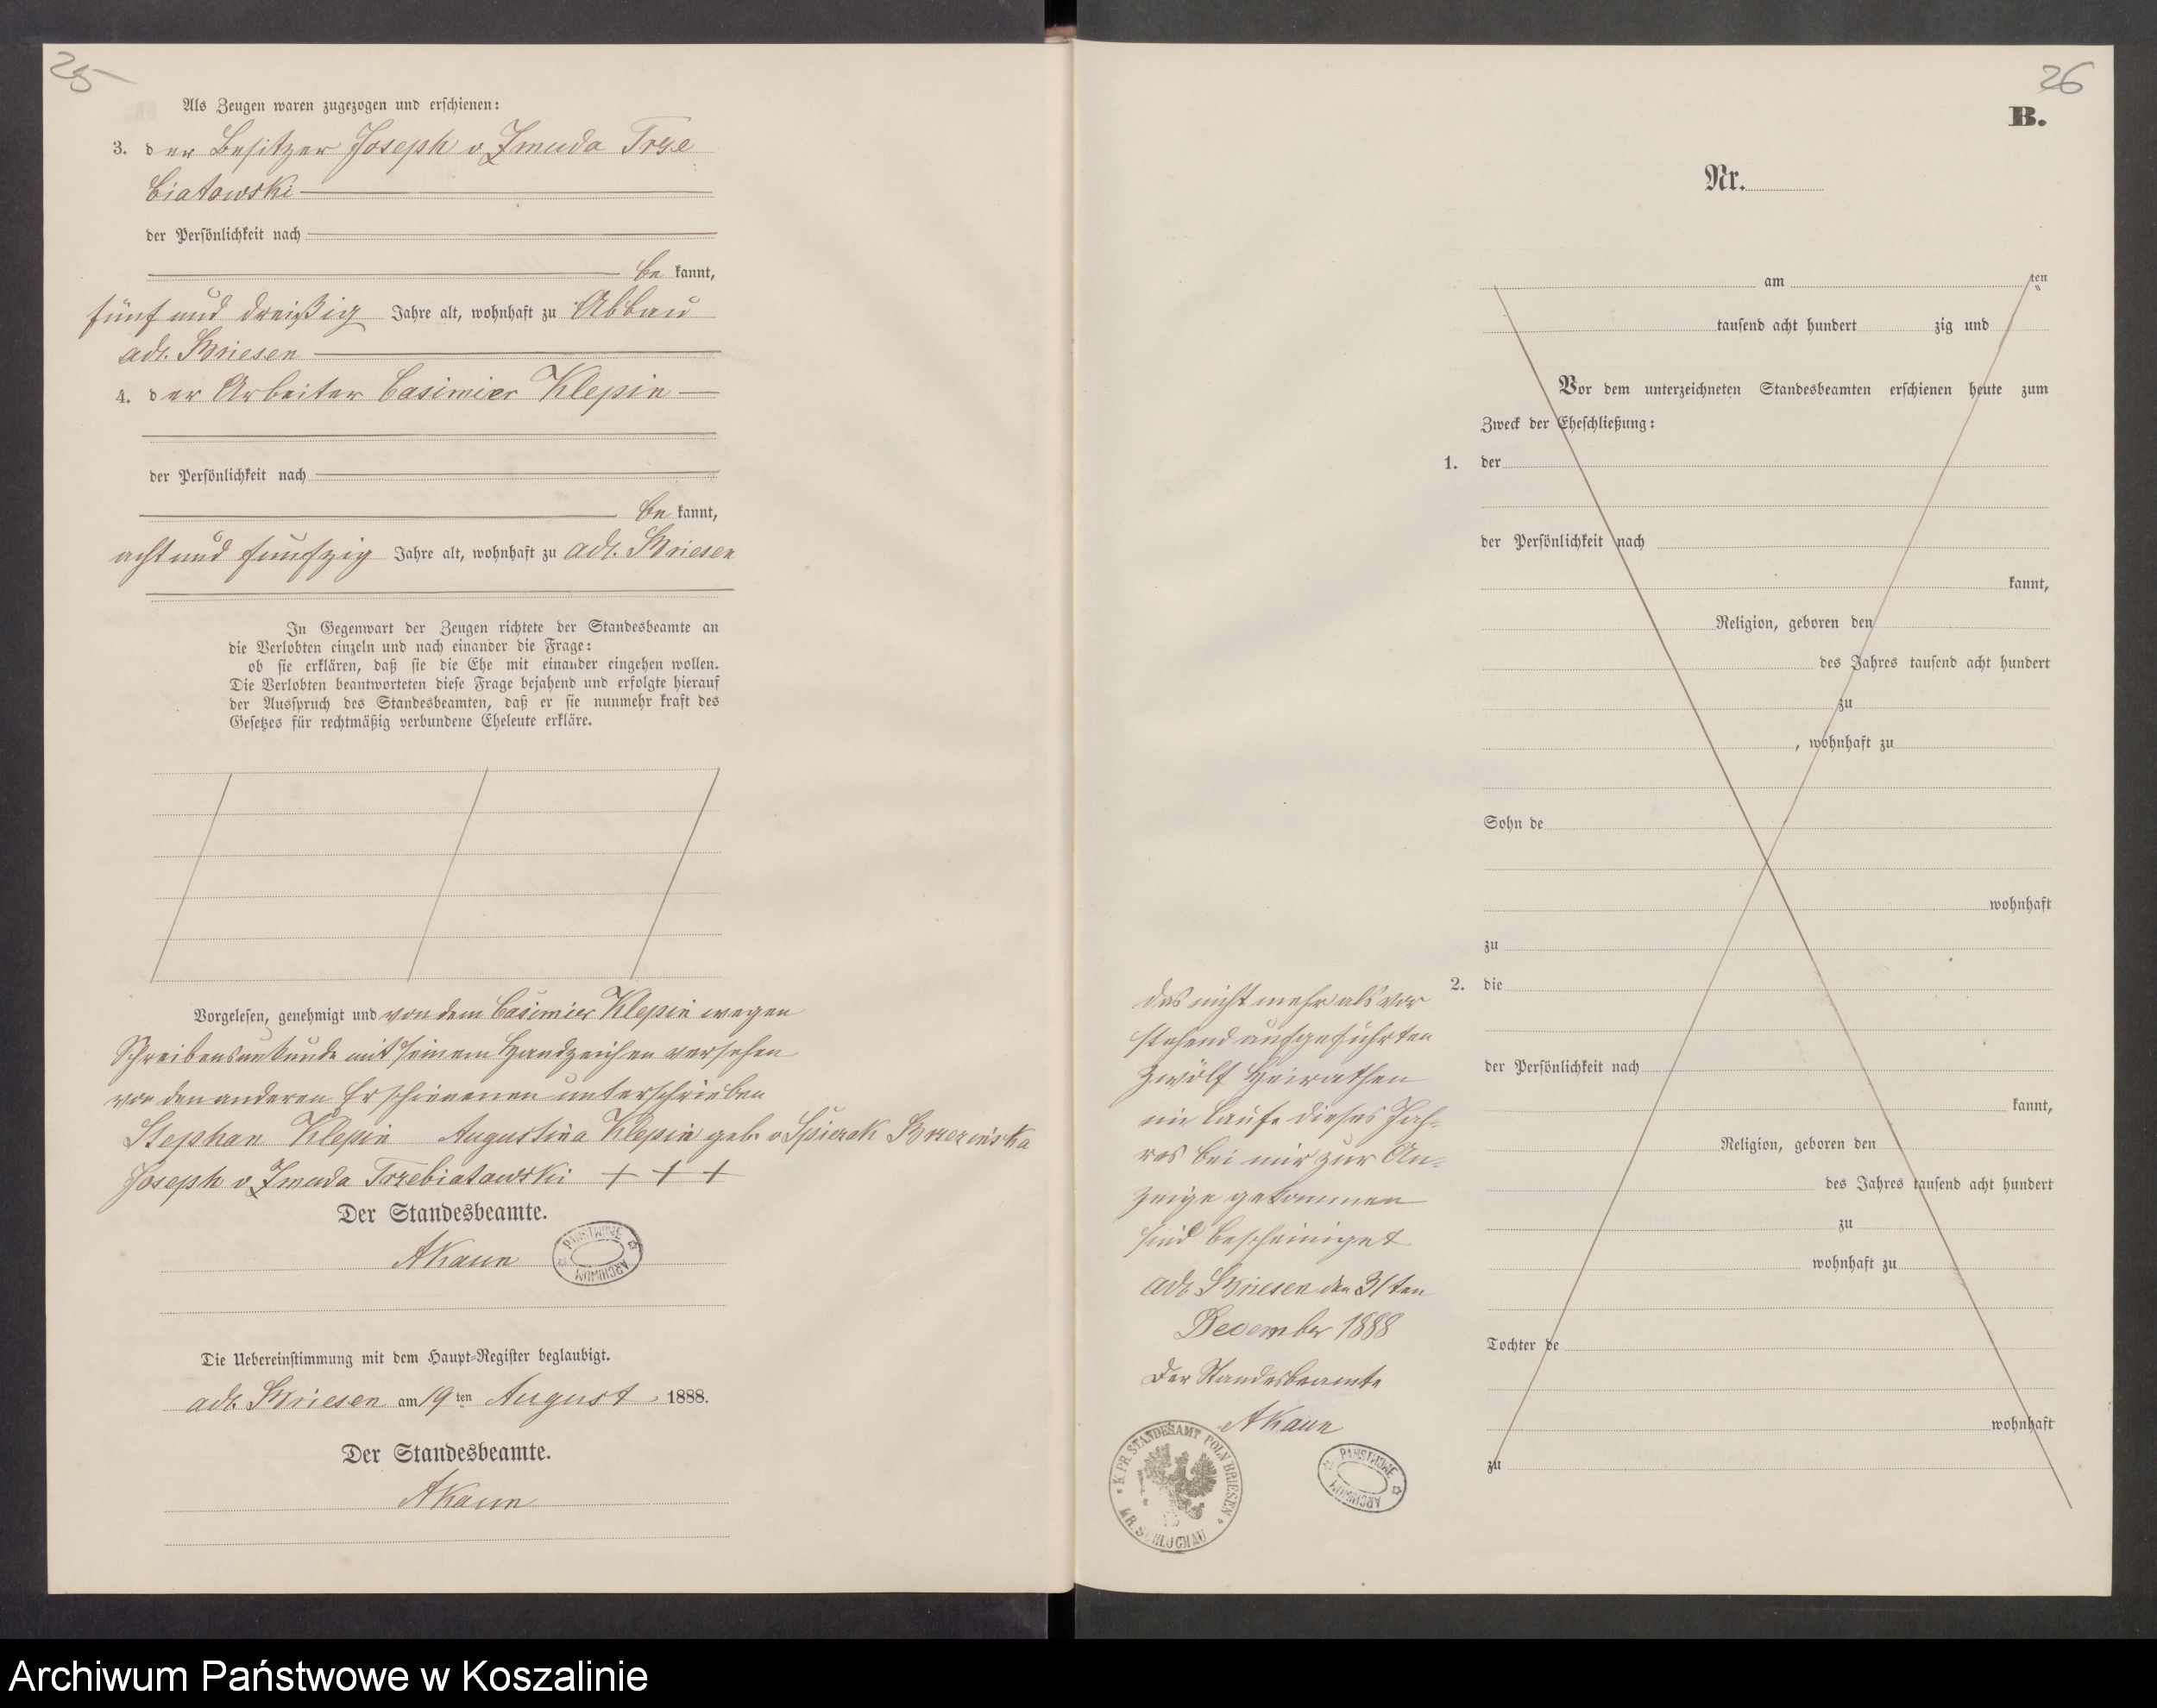 25
Als Zeugen waren zugezogen und erschienen:
3. der Besitzer Joseph v. Zmuda Trze
biatowski
der Persönlichkeit nach
be kannt,
fünf und dreißig Jahre alt, wohnhaft zu Abbau
adl. Briesen
4. der Arbeiter Casimier Klepin
der Persönlichkeit nach
be kannt,
acht und funfzig Jahre alt, wohnhaft zu adl. Briesen
In Gegenwart der Zeugen richtete der Standesbeamte an
die Verlobten einzeln und nach einander die Frage:
ob sie erklären, daß sie die Ehe mit einander eingehen wollen.
Die Verlobten beantworteten diese Frage bejahend und erfolgte hierauf
der Ausspruch des Standesbeamten, daß er sie nunmehr kraft des
Gesetzes für rechtmäßig verbundene Eheleute erkläre.
Vorgelesen, genehmigt und von dem Casimier Klepin wegen
Schreibensunkunde mit seinem Handzeichen versehen
von den anderen Erschienenen unterschrieben
Stephan Klepin Augustina Klepin geb. v Spiczak Brzezinska
Joseph v. Zmuda Trzebiatowski + + +
Der Standesbeamte.
AKaun
PAŃSTWOWE ARCHIWUM
Die Uebereinstimmung mit dem Haupt-Register beglaubigt.
adl. Briesen am 19ten August 1888.
Der Standesbeamte.
AKaun
26
B.
Nr.
am ten
tausend acht hundert zig und
Vor dem unterzeichneten Standesbeamten erschienen heute zum
Zweck der Eheschließung:
1. der
der Persönlichkeit nach
kannt,
Religion, geboren den
des Jahres tausend acht hundert
zu
, wohnhaft zu
Sohn de
wohnhaft
zu
2. die
der Persönlichkeit nach
kannt,
Religion, geboren den
des Jahres tausend acht hundert
zu
wohnhaft zu
Tochter de
wohnhaft
zu
das nicht mehr als vor
stehend aufgeführten
zwölf Heirathen
im Laufe dieses Jah-
res bei mir zur An-
zeige gekommen
sind bescheiniget
adl. Briesen den 31ten
December 1888
Der Standesbeamte
AKaun
K. PR. STANDESAMT POLN BRIESEN
KR. SCHLOCHAU
PAŃSTWOWE ARCHIWUM
Archiwum Państwowe w Koszalinie